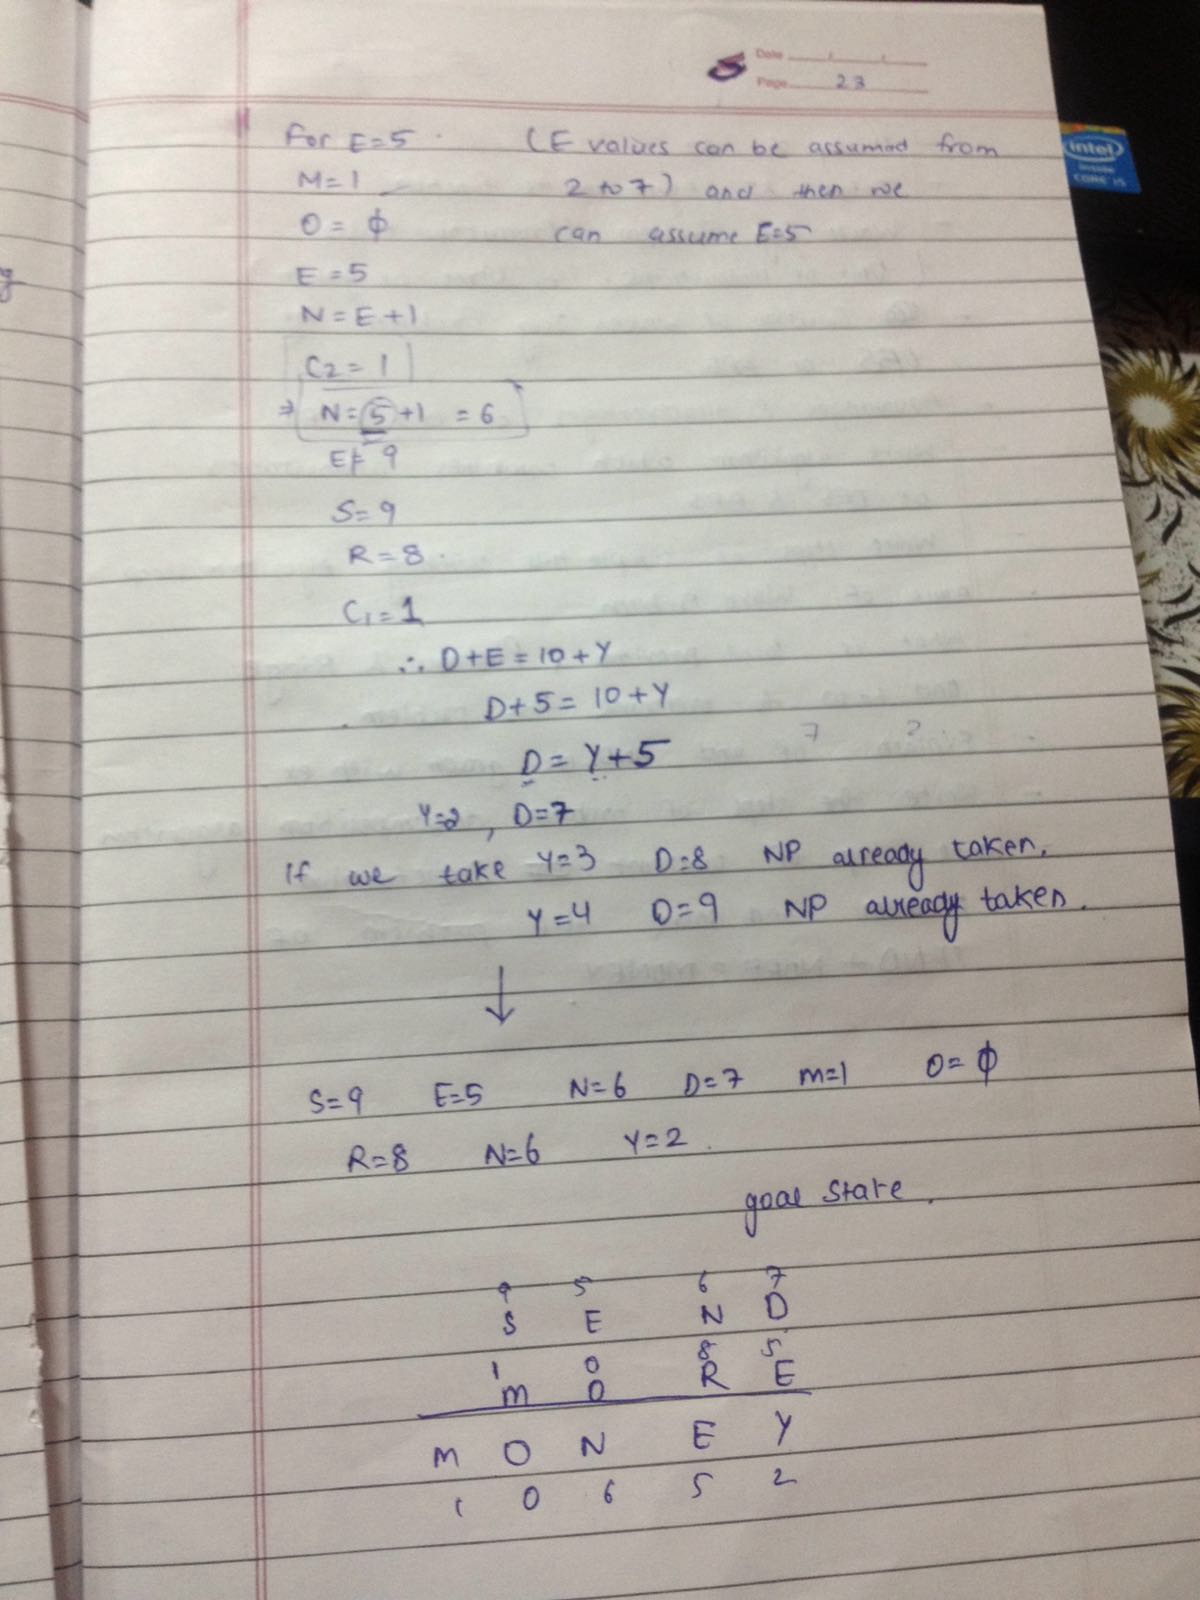 5 Date / /
Page 23
For E=5 . (E values can be assumed from
M=1 2 to 7) and then we
O = ϕ can assume E=5
E = 5
N = E +1
C2 = 1
⇒ N = 5 +1 = 6
E ≠ 9
S= 9
R = 8 .
C1 = 1
∴ D+E = 10 + Y
D + 5 = 10 + Y
D = Y + 5 7 2
Y=2 , D=7
If we take Y=3 D=8 NP already taken.
Y = 4 D = 9 NP already taken.
↓
S=9 E=5 N=6 D=7 M=1 O= ϕ
R=8 N=6 Y=2 .
goal state .
9 5 6 7
S E N D
1 0 8 5
M O R E
M O N E Y
1 0 6 5 2
intel
inside
CORE i5